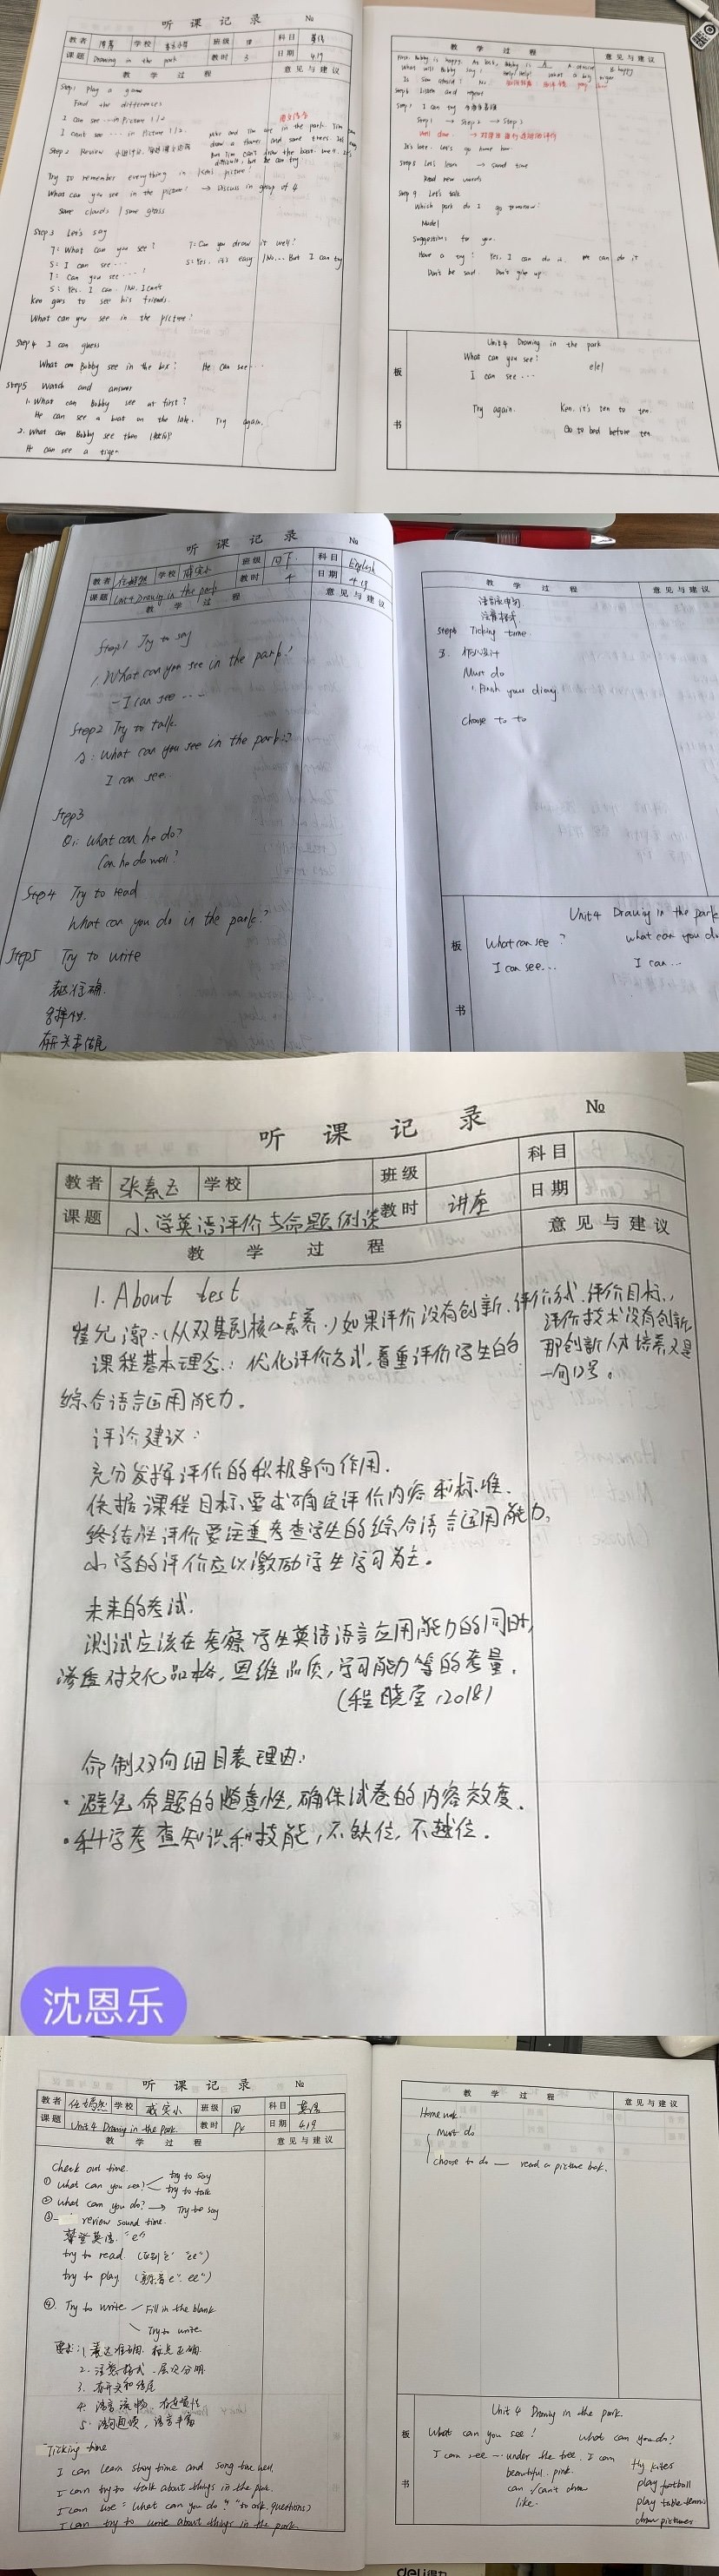 听 课 记 录 №
教者 学校 班级 科目
课题 Drawing in the park 教时 3 日期 4.19
教 学 过 程 意见与建议
Step1 Play a game
Find the differences
I can see ... in Picture 1/2
I can't see ... in Picture 1/2.
Step 2 Review
Try to remember everything in picture!
What can you see in the picture? → Discuss in group of 4
Some clouds / some grass
Step3 Let's say
T: What can you see? T: Can you draw it well?
S: I can see ... S: Yes, it's easy / No... But I can try
T: Can you see ...?
S: Yes, I can. / No, I can't
Ken goes to see his friends.
What can you see in the picture?
Step 4 I can guess
What can Bobby see in the box? He can see...
Step5 Watch and answer
1. What can Bobby see at first?
He can see a boat on the lake. Try again.
2. What can Bobby see then
He can see a tiger
教 学 过 程 意见与建议
What will Bobby say? Help! Help! What a big tiger
Step6 Listen and repeat
Step7 I can try
Step1 → Step2 → Step3
Well done.
It's late. Let's go home now.
Step8 Let's learn → Sound time
Read new words
Step 9 Let's talk
Which park do I go tomorrow?
Model
Suggestions for you.
Have a try! Yes, I can do it. We can do it
Don't be sad. Don't give up
板 书
Unit 4 Drawing in the park
What can you see?
I can see ...
Try again. Ken, it's ten to ten.
Go to bed before ten
听 课 记 录 №
教者 学校 班级 四下 科目 English
课题 Unit4 Drawing in the park 教时 4 日期 4.19
教 学 过 程 意见与建议
Step1 Try to say
1. What can you see in the park?
- I can see ...
Step2 Try to talk
A: What can you see in the park?
I can see
Step3
Q1: What can he do?
Can he do well?
Step4 Try to read
What can you do in the park?
Step5 Try to write
表达准确
有开头和结尾
教 学 过 程 意见与建议
Step6 Ticking time
作业设计
Must do
Finish your diary
Choose to do
板 书
Unit4 Drawing in the park
What can see? what can you do
I can see... I can...
听 课 记 录 №
教者 学校 班级 科目
课题 小学英语评价与命题例谈 教时 讲座 日期
教 学 过 程 意见与建议
1. About test
崔允漷:(从双基到核心素养)如果评价没有创新,评价方式、评价目标、
评价技术没有创新,
那创新人才培养又是
一句口号。
课程基本理念:优化评价方式,着重评价学生的
综合语言运用能力。
评价建议:
充分发挥评价的积极导向作用.
依据课程目标要求确定评价内容和标准.
终结性评价要注重考查学生的综合语言运用能力,
小学的评价应以激励学生学习为主。
未来的考试.
测试应该在考察学生英语语言应用能力的同时,
渗透对文化品格,思维品质,学习能力等的考量.
(程晓堂,2018)
命制双向细目表理由:
· 避免命题的随意性,确保试卷的内容效度.
· 科学考查知识和技能,不缺位,不越位.
沈恩乐
听 课 记 录 №
教者 学校 班级 四 科目 英语
课题 Unit 4 Drawing in the park. 教时 P4 日期 4.19
教 学 过 程 意见与建议
Check out time.
① What can you see? try to say
try to talk
② What can you do? → Try to say
③ review sound time.
try to read.
try to play
④ Try to write Fill in the blank
Try to write
要求: 1. 表达准确 标点正确
2. 注意格式、层次分明
3. 有开头和结尾
4. 语言流畅、有连贯性
5. 语言丰富
Ticking time
I can learn story time and song time well.
I can try to talk about things in the park.
I can use "What can you do?" to ask questions
I can try to write about things in the park
教 学 过 程 意见与建议
Home wok.
Must do
choose to do — read a picture book.
板 书
Unit 4 Drawing in the park.
What can you see? What can you do?
I can see ... under the tree. I can fly kites
beautiful. pink. play football
can /can't draw play table tennis
like. draw pictures
deli得力